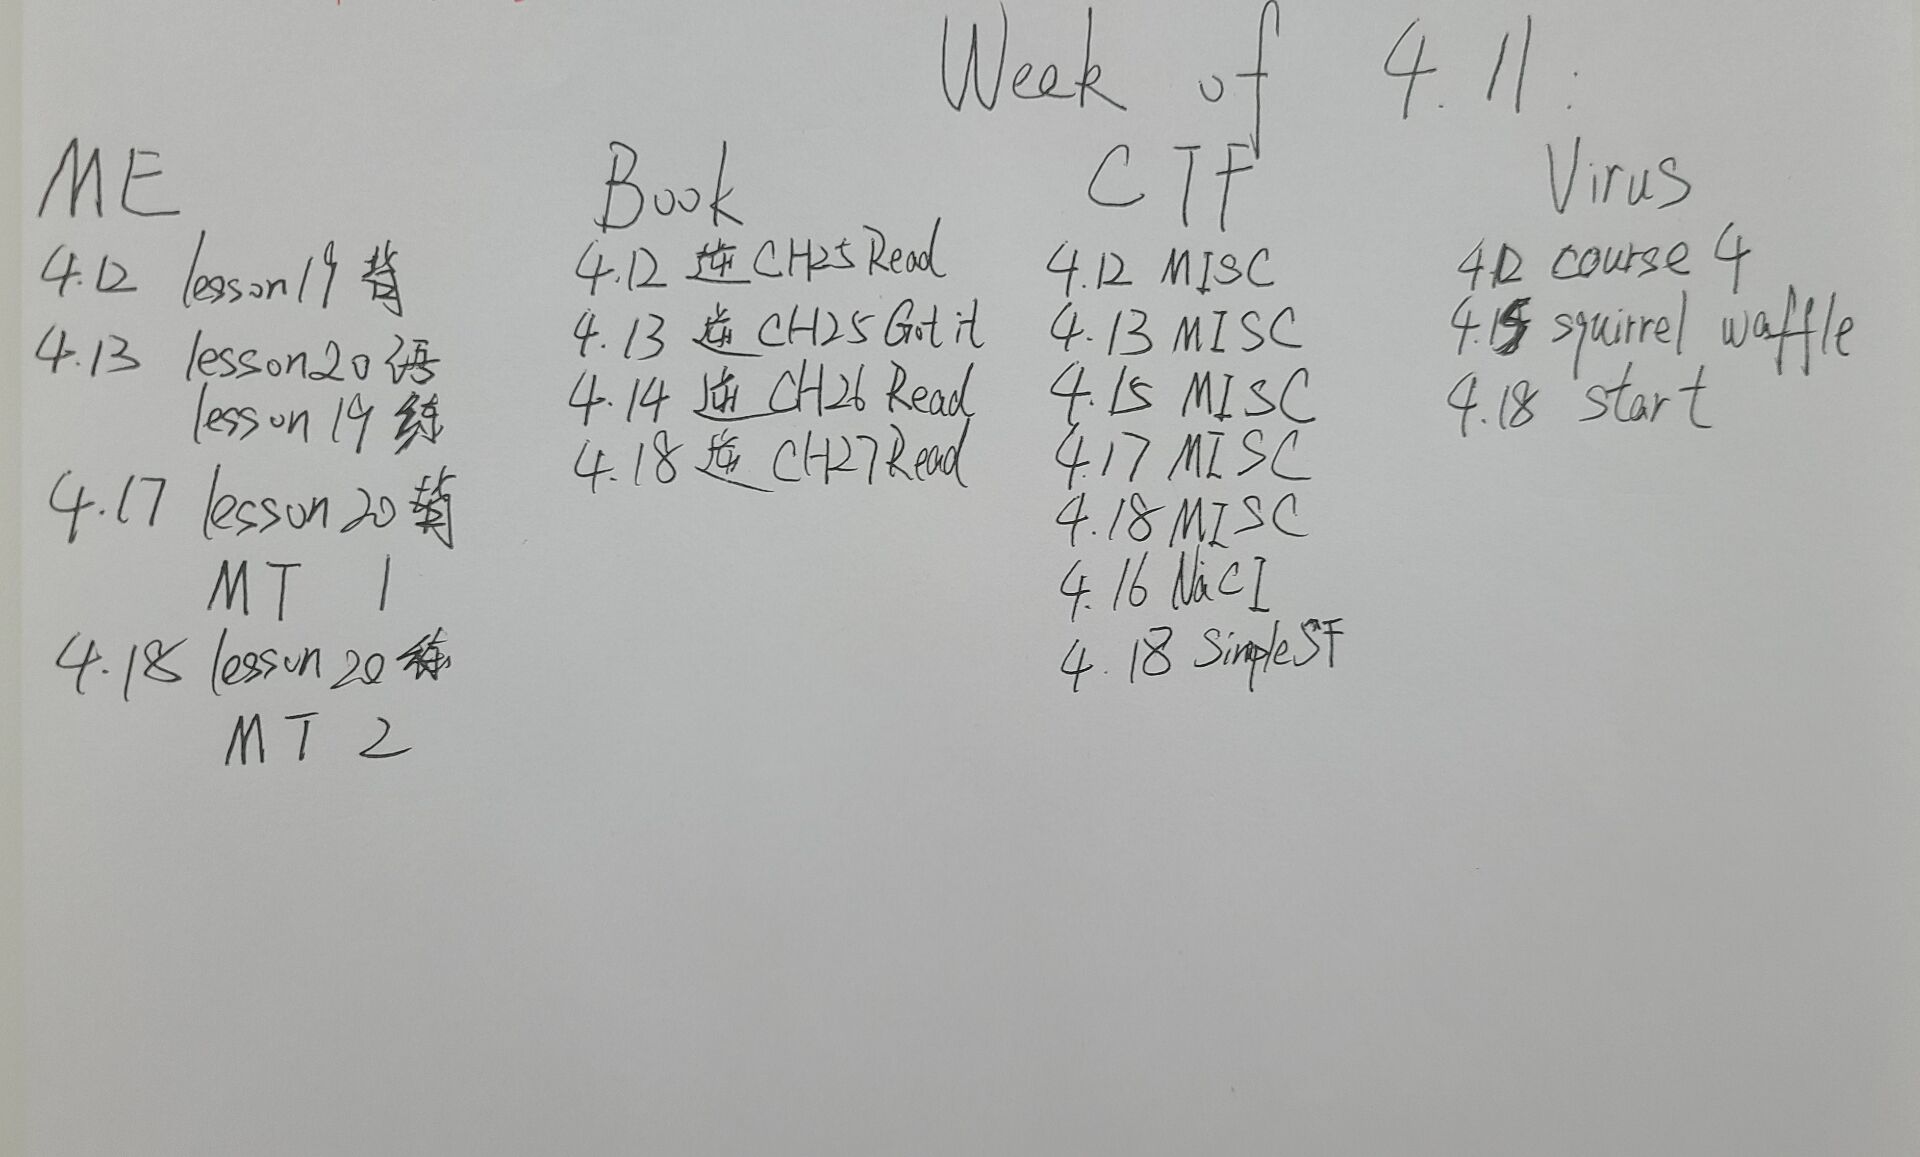 Week of 4.11:
ME
4.12 lesson19 背
4.13 lesson20 语
lesson 19 练
4.17 lesson 20 背
MT 1
4.18 lesson 20 练
MT 2
Book
4.12 逆 CH25 Read
4.13 逆 CH25 Got it
4.14 逆 CH26 Read
4.18 逆 CH27 Read
CTF
4.12 MISC
4.13 MISC
4.15 MISC
4.17 MISC
4.18 MISC
4.16 NaCI
4.18 SimpleSF
Virus
4.12 course 4
4.15 squirrel waffle
4.18 start